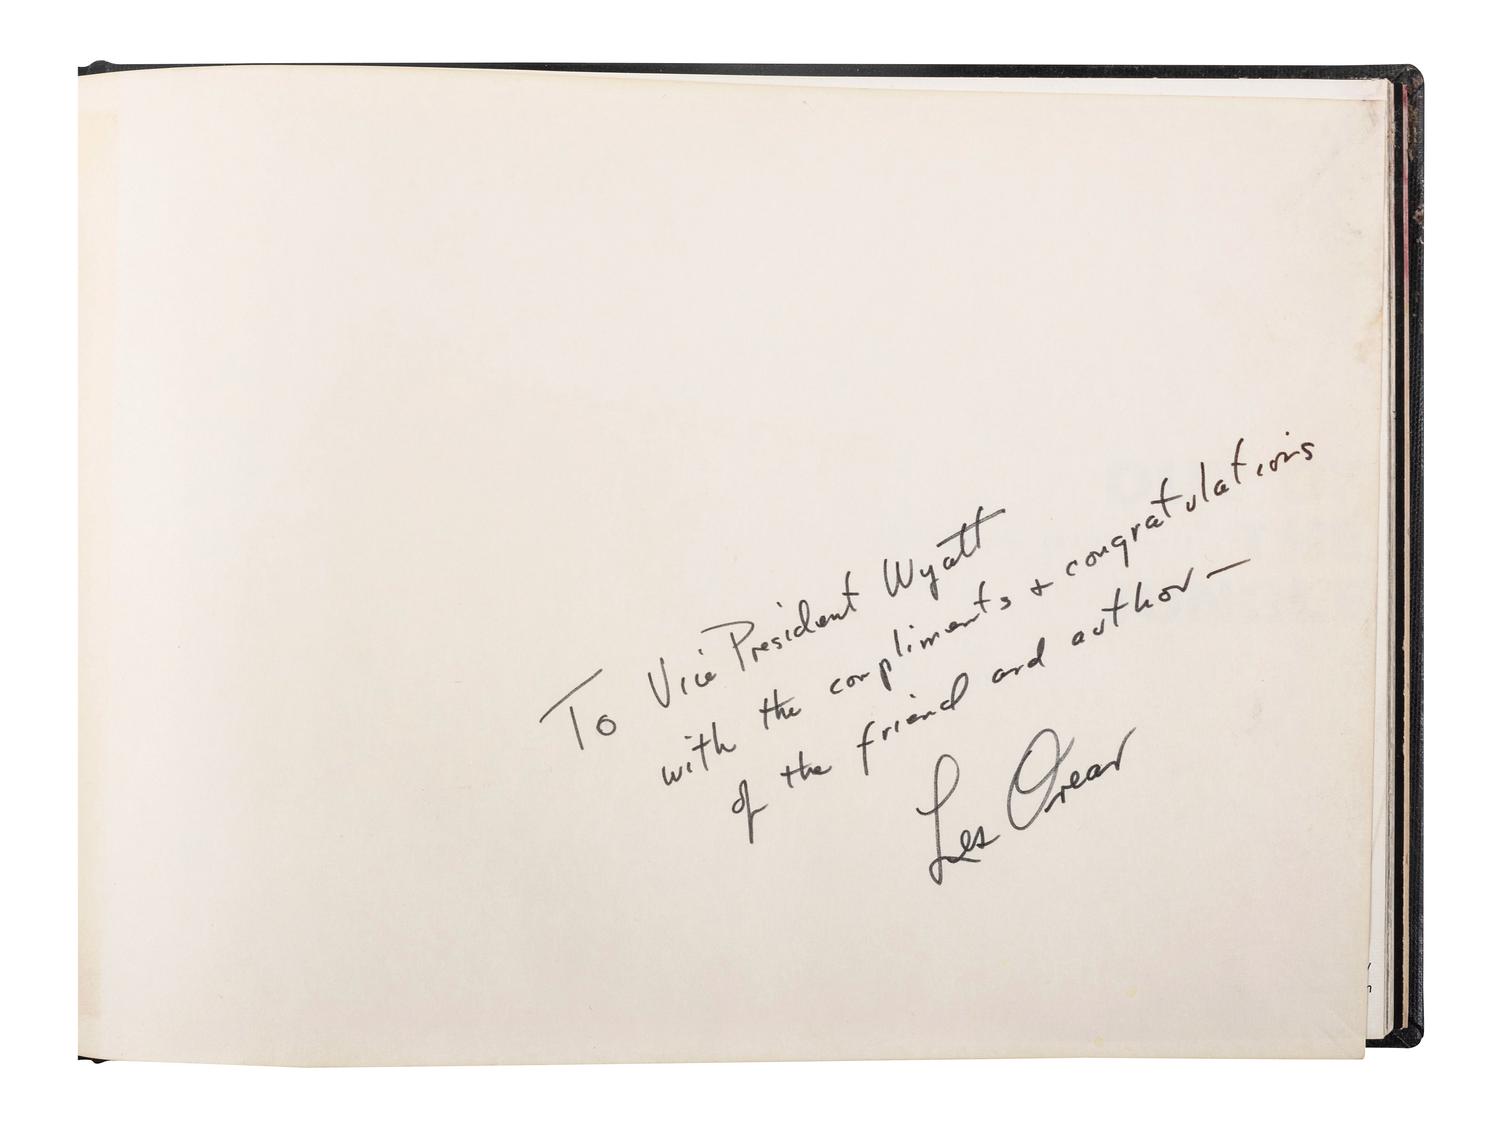 To Vice President Wyatt
with the compliments + congratulations
of the friend and author —
Les Orear